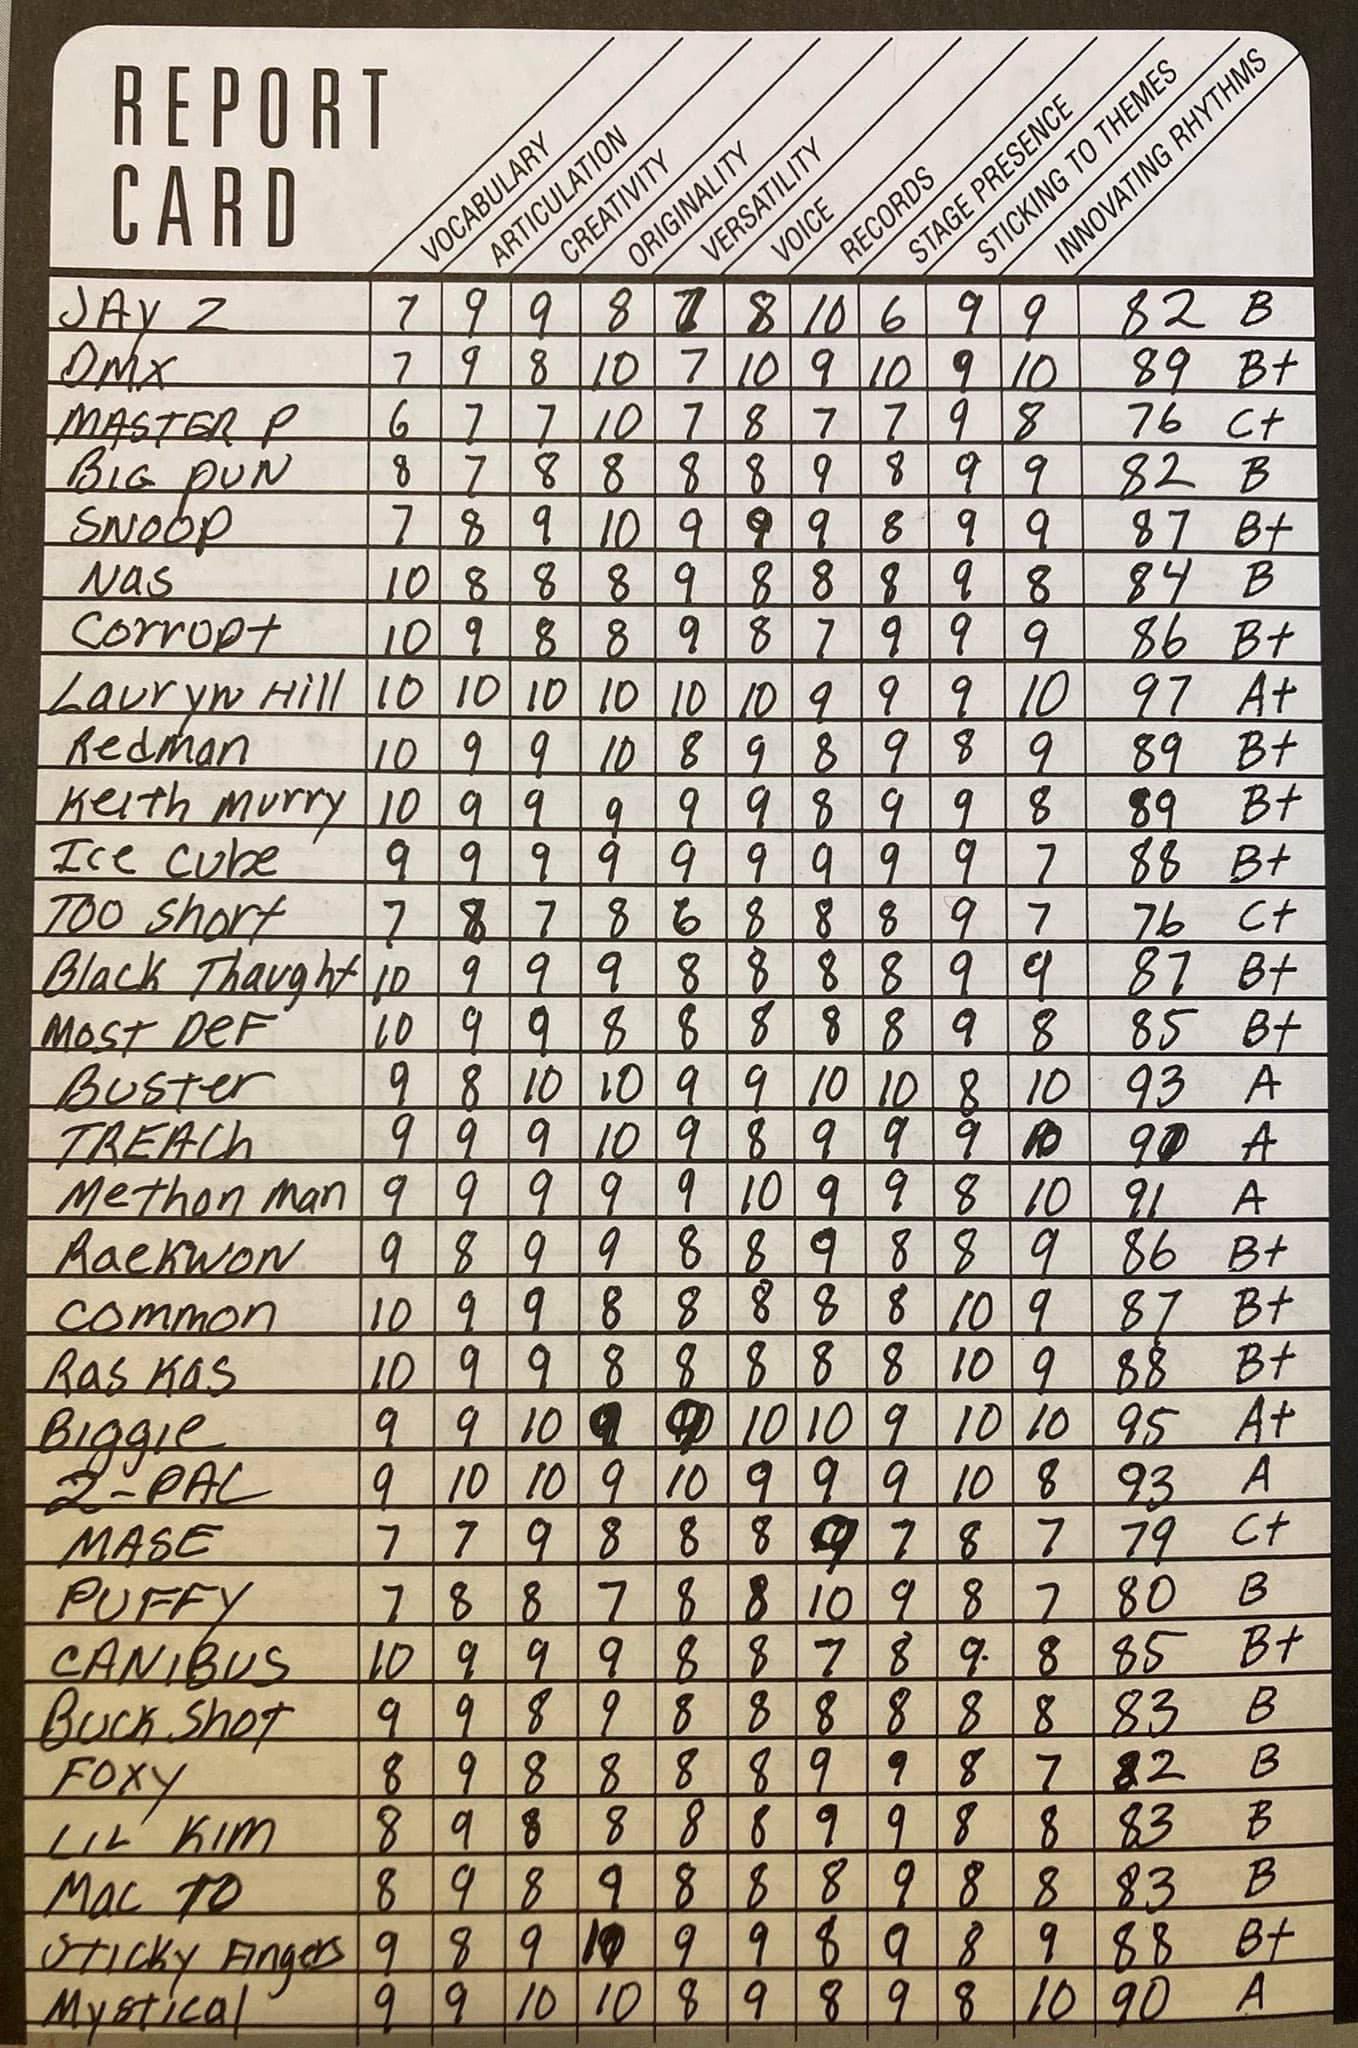 REPORT
CARD
VOCABULARY
ARTICULATION
CREATIVITY
ORIGINALITY
VERSATILITY
VOICE
RECORDS
STAGE PRESENCE
STICKING TO THEMES
INNOVATING RHYTHMS
JAY Z 7 9 9 8 7 8 10 6 9 9 82 B
DMX 7 9 8 10 7 10 9 10 9 10 89 B+
MASTER P 6 7 7 10 7 8 7 7 9 8 76 C+
BIG PUN 8 7 8 8 8 8 9 8 9 9 82 B
SNOOP 7 8 9 10 9 9 9 8 9 9 87 B+
Nas 10 8 8 8 9 8 8 8 9 8 84 B
Corropt 10 9 8 8 9 8 7 9 9 9 86 B+
Lauryn Hill 10 10 10 10 10 10 9 9 9 10 97 A+
Redman 10 9 9 10 8 9 8 9 8 9 89 B+
Keith Murry 10 9 9 9 9 9 8 9 9 8 89 B+
Ice Cube 9 9 9 9 9 9 9 9 9 7 88 B+
Too Short 7 8 7 8 6 8 8 8 9 7 76 C+
Black Thaught 10 9 9 9 8 8 8 8 9 9 87 B+
Most Def 10 9 9 8 8 8 8 8 9 8 85 B+
Buster 9 8 10 10 9 9 10 10 8 10 93 A
TREACh 9 9 9 10 9 8 9 9 9 10 91 A
Methon Man 9 9 9 9 9 10 9 9 8 10 91 A
Raekwon 9 8 9 9 8 8 9 8 8 9 86 B+
Common 10 9 9 8 8 8 8 8 10 9 87 B+
Ras Kas 10 9 9 8 8 8 8 8 10 9 88 B+
Biggie 9 9 10 9 9 10 10 9 10 10 95 A+
2-PAC 9 10 10 9 10 9 9 9 10 8 93 A
MASE 7 7 9 8 8 8 9 7 8 7 79 C+
PUFFY 7 8 8 7 8 8 10 9 8 7 80 B
CANIBUS 10 9 9 9 8 8 7 8 9 8 85 B+
Buck Shot 9 9 8 9 8 8 8 8 8 8 83 B
FOXY 8 9 8 8 8 8 9 9 8 7 82 B
LIL KIM 8 9 8 8 8 8 9 9 8 8 83 B
Mac 10 8 9 8 9 8 8 8 9 8 8 83 B
Sticky Fingers 9 8 9 10 9 9 8 9 8 9 88 B+
Mystical 9 9 10 10 8 9 8 9 8 10 90 A